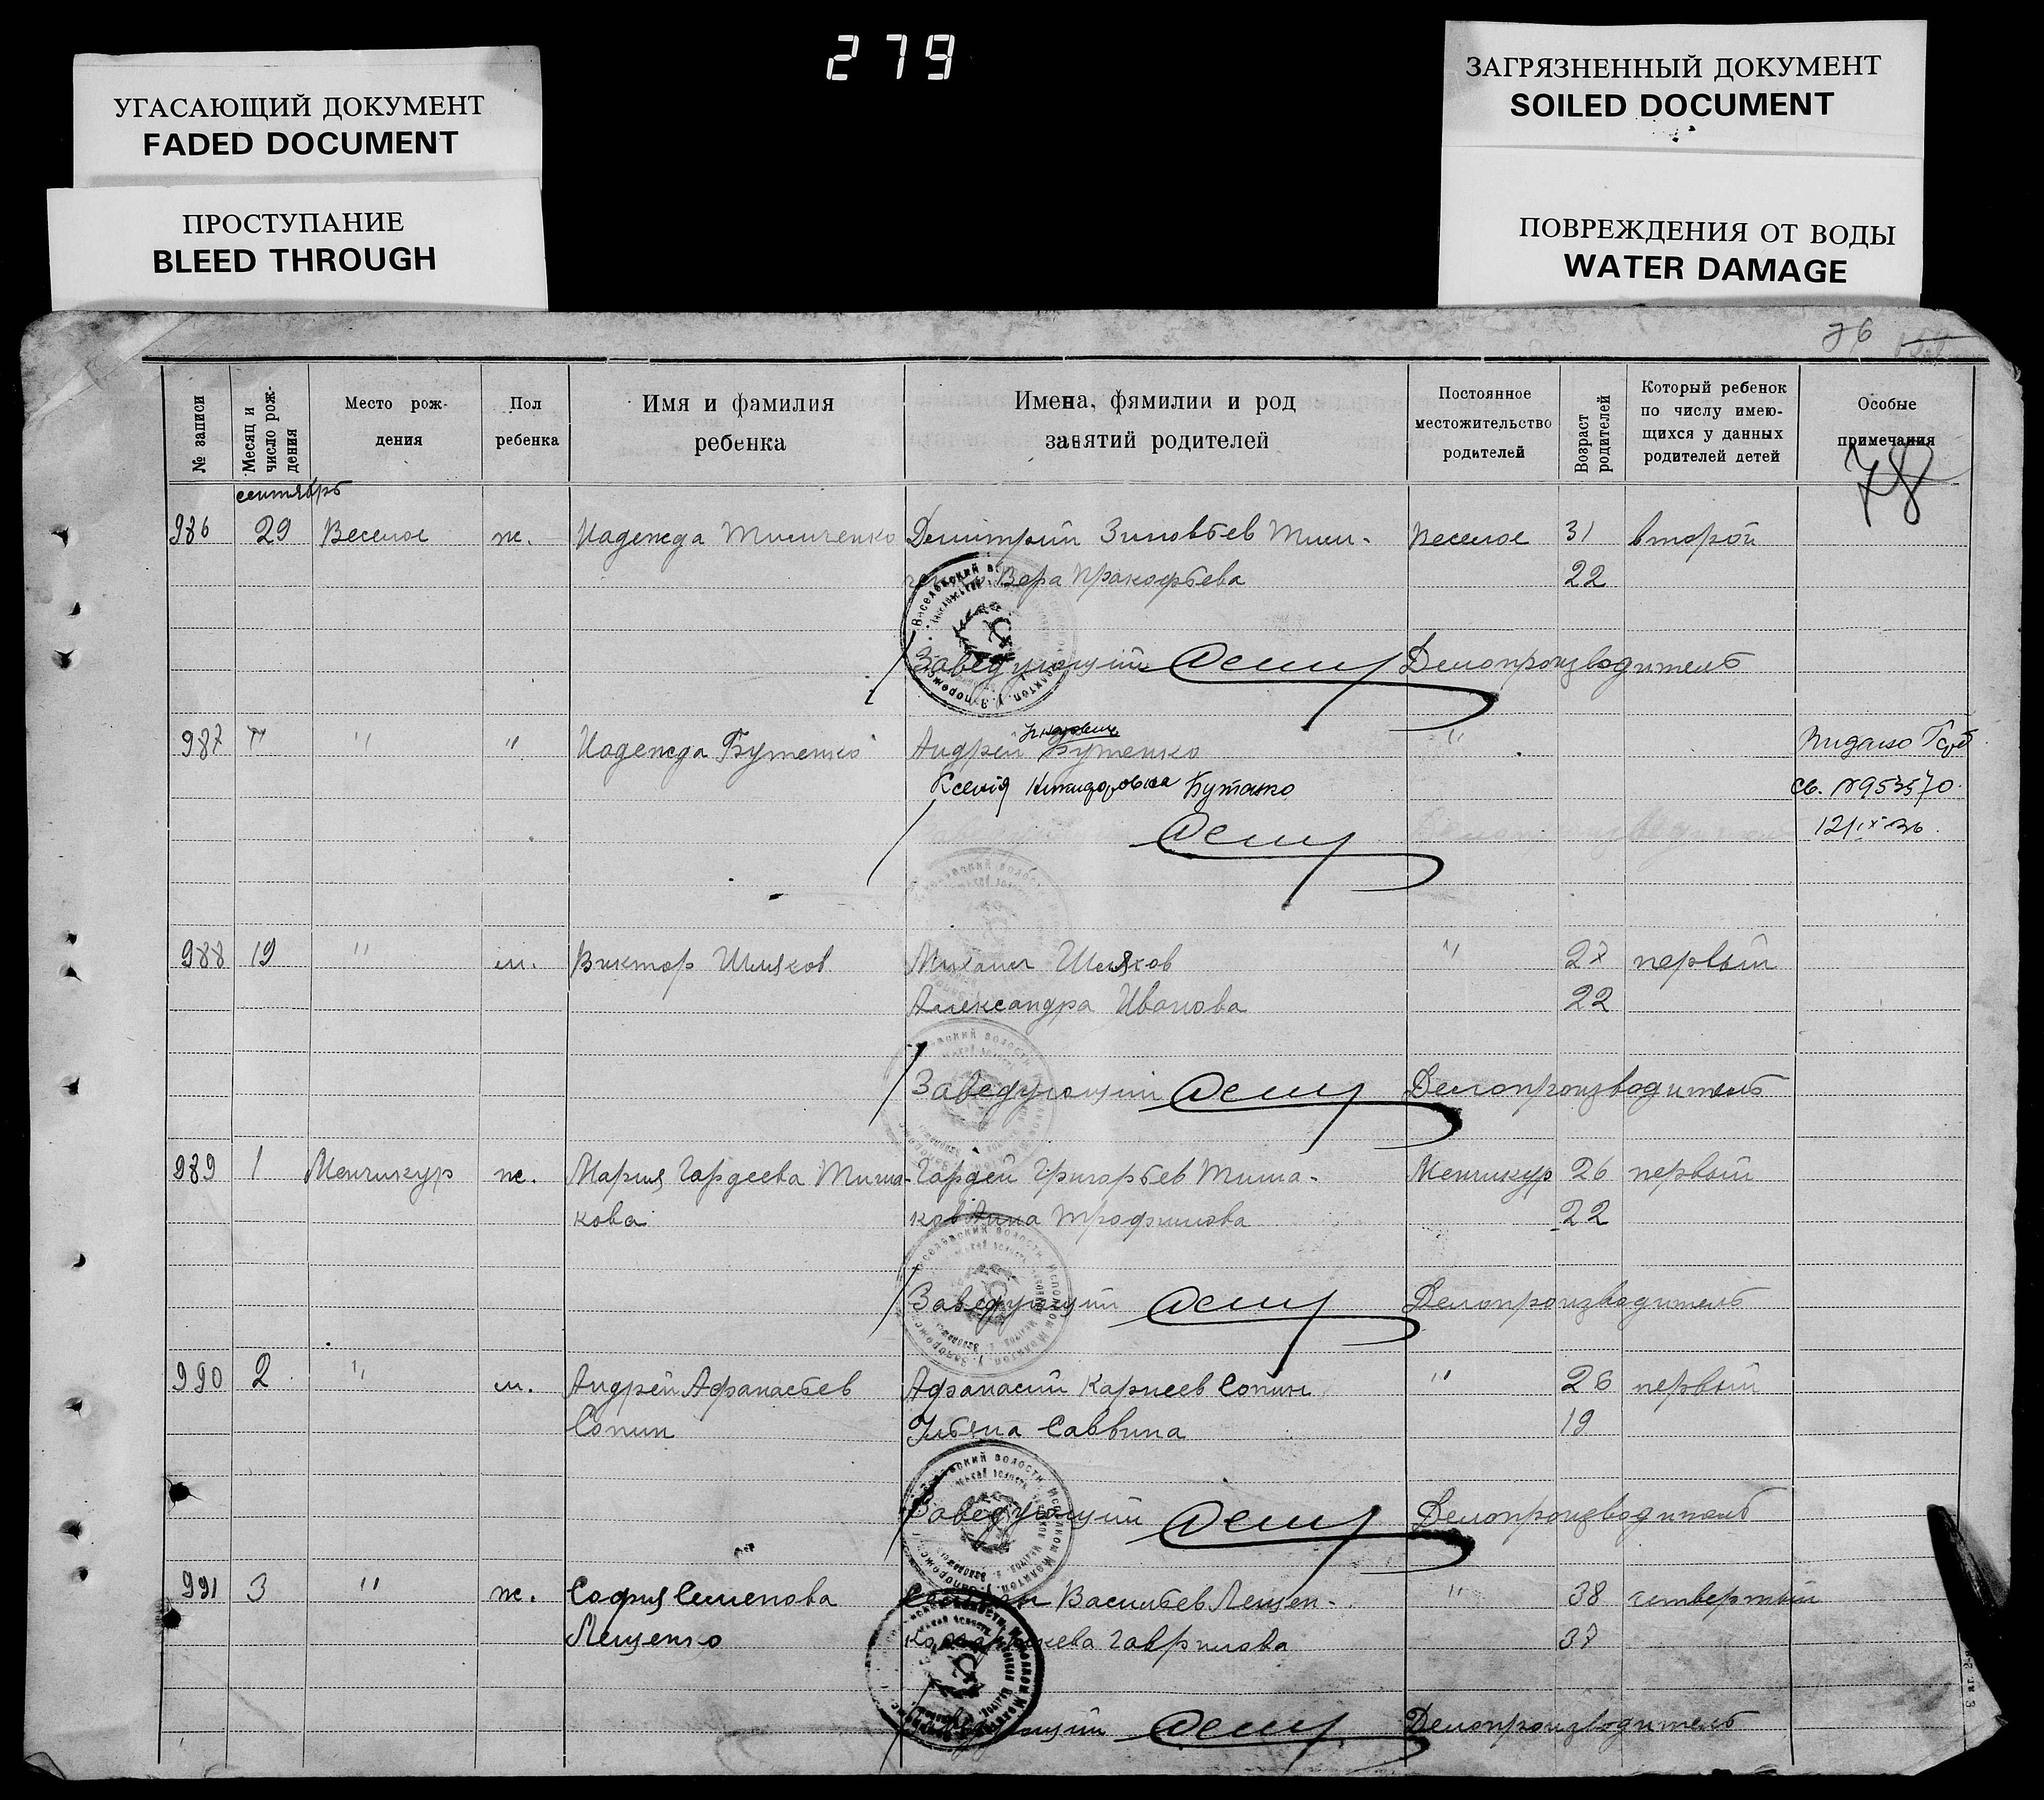 279
УГАСАЮЩИЙ ДОКУМЕНТ
FADED DOCUMENT
ПРОСТУПАНИЕ
BLEED THROUGH
ЗАГРЯЗНЕННЫЙ ДОКУМЕНТ
SOILED DOCUMENT
ПОВРЕЖДЕНИЯ ОТ ВОДЫ
WATER DAMAGE
76
№ записи
Месяц и число рождения
Место рож-
дения
Пол
ребенка
Имя и фамилия
ребенка
Имена, фямилии и род
занятий родителей
Постоянное
местожительство
родителей
Возраст
родителей
Который ребенок
по числу имею-
щихся у данных
родителей детей
Особые
примечания
78
сентябрь
986 29 Веселое ж. Надежда Тимченко Димитрий Зиновьев Тим- Веселое 31 второй
Вера Прокофьева 22
Заведующий Делопроизводитель
987 " " Надежда Бутенко Андрей Бутенко "
Ксенія Бутенко
Св. №953570
988 19 " м. Виктор Шляхов Михаил Шляхов " 27 первый
Александра Иванова 22
Заведующий Делопроизводитель
989 1 Менчикур ж. Мария Гордеева Тима- Гордей Григорьев Тима- Менчикур 26 первый
кова ков Анна Трофимова 22
Заведующий Делопроизводитель
990 2 " м. Андрей Афанасьев Афанасий Карнеев Сопин " 26 первый
Сопин Ульяна Саввина 19
Заведующий Делопроизводитель
991 3 " ж. София Семенова Семен Васильев Лещен- " 38 четвертый
Лещенко Гаврилова 37
Заведующий Делопроизводитель